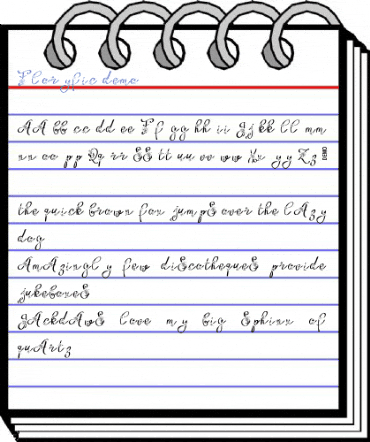 Floryfic demo
AA bb cc dd ee Ff gg hh ii Jj kk ll mm
nn oo pp Qq rr SS tt uu vv ww Xx yy Zz DEMO
the quick brown fox jumpS over the lAzy
dog
AmAzingly few diScothequeS provide
jukeboxeS
JAckdAwS love my big Sphinx of
quArtz